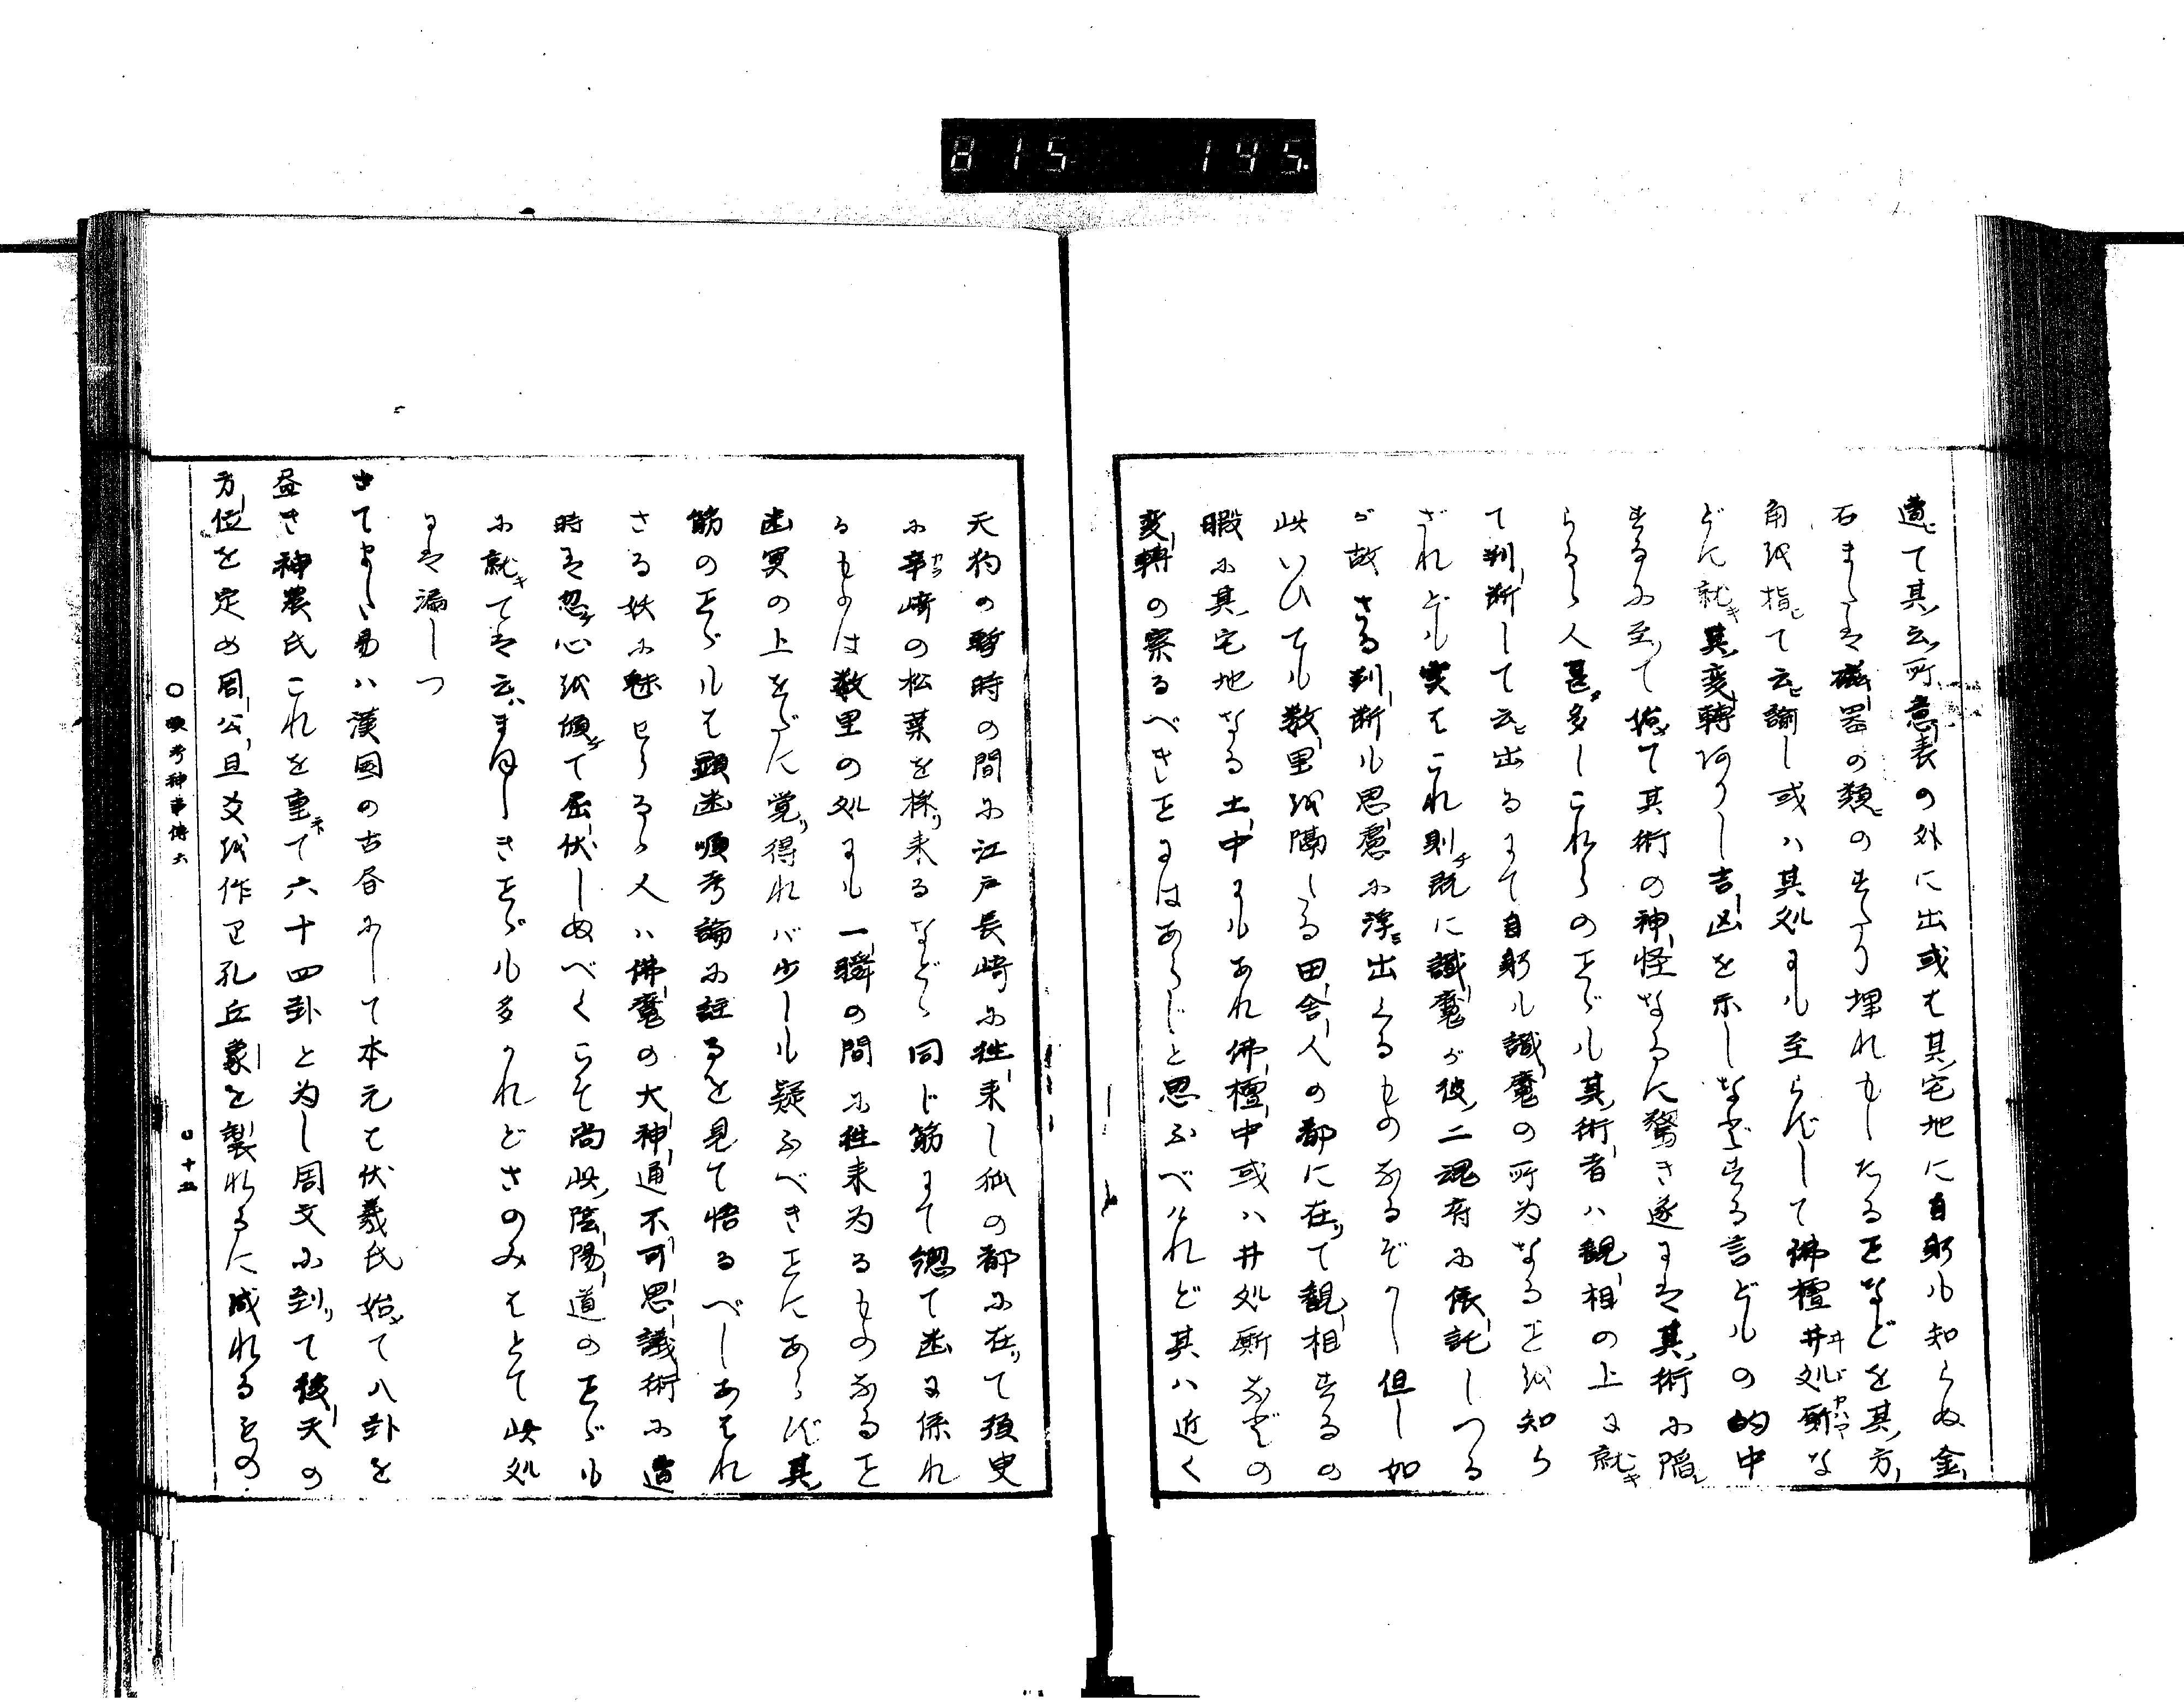 815 145.
遣て其云所意表の外に出或は其宅地に自躬も知らぬ金
石または磁器の類の埋れもしたる𪜈などを其方
角を指て云諭し或ハ其処にも至らずして佛檀井処厠な
どに就其変轉ありし吉凶を示しなどする言どもの的中
するに至て始て其術の神怪なるに驚き遂には其術に陷
らるる人甚多しこれらの𪜈ども其術者ハ観相の上に就
て判断して云出るにて自躬も識魔の所為なる𪜈を知ら
ざれども実はこれ則既に識魔が彼二魂府に依託しつる
が故さる判断も思慮に浮出くるものなるぞかし但し如
此いひても数里を隔たる田舎人の都に在て観相するの
暇に其宅地なる土中にもあれ佛檀中或ハ井処厠などの
変轉の察るべき𪜈にはあらじと思ふべけれど其ハ近く
天狗の暫時の間に江戸長崎に往来し狐の都に在て須臾
に辛崎の松葉を採来るなどゝ同じ筋にて總て幽に係れ
るものは数里の処にも一瞬の間に往来為るものなる𪜈
幽冥の上をだに覚得れバ少しも疑ふべき𪜈にあらず其
筋の𪜈どもは顕幽順考論に註るを見て悟るべしあはれ
さる妖に魅せらるゝ人ハ佛魔の大神通不可思議術に遣
時は忽心を傾て屈伏しぬべくこそ尚此陰陽道の𪜈ども
に就ては云まほしき𪜈ども多かれどさのみはとて此処
には漏しつ
さてまた易ハ漢國の古昔にして本元は伏羲氏始て八卦を
益き神農氏これを重て六十四卦と為し周文に到て後天の
方位を定め周公旦爻を作り孔丘象を製れるに成れるもの
十五